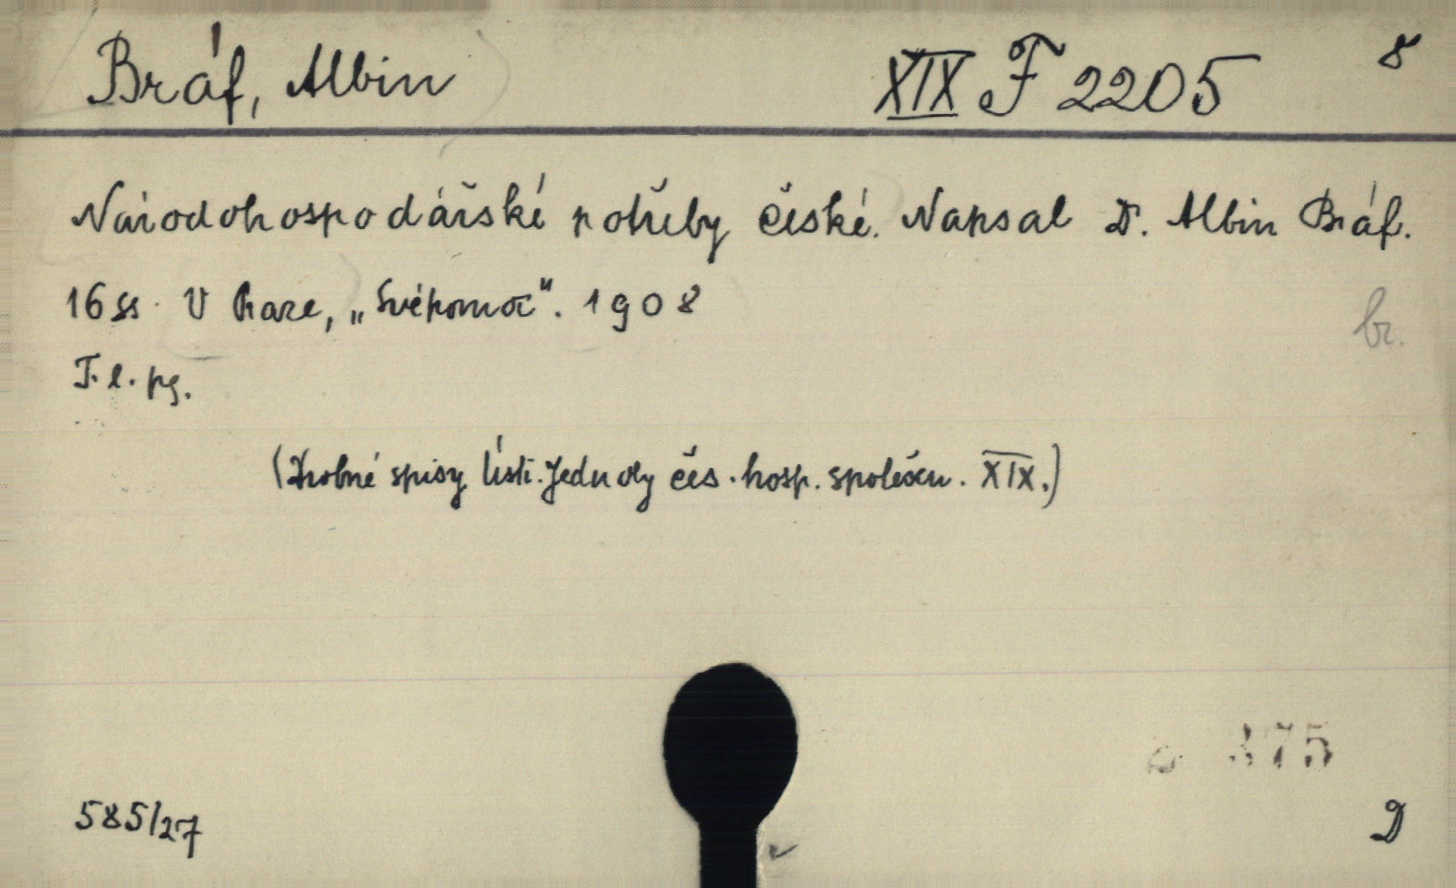 Bráf, Albin XIX F 2205 8
Národohospodářské potřeby české. Napsal Dr. Albin Bráf.
16 ss. V Praze, „Svépomoc". 1908
br.
T. l. pg.
(Drobné spisy Ústř. Jednoty čes. hosp. společen. XIX.)
375
585/27
D